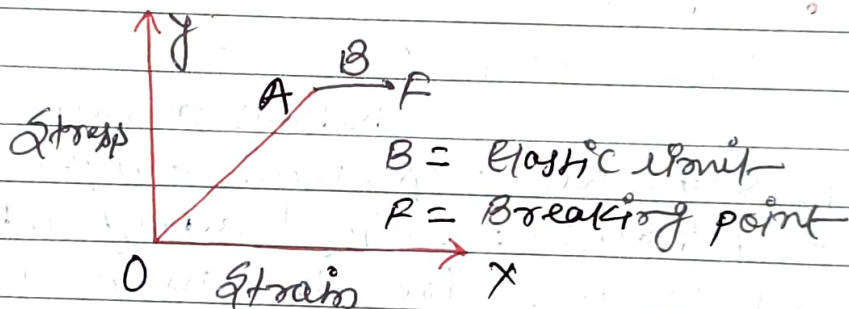 y
B
A F
Stress
B = Elastic limit
F = Breaking point
O Strain X